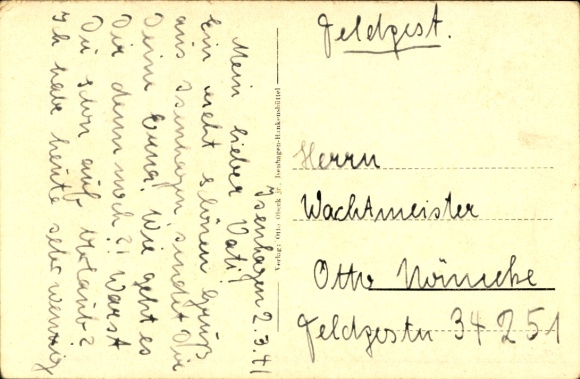 Isenhagen 2.3.41
Mein lieber Vati!
Ein recht schönen Gruß
aus Isenhagen sendet Dir
Deine Erna! Wie geht es
Dir denn noch?! Warst
Du schon auf Urlaub?
Ich habe heute sehr wenig
Verlag: Otto jr., Isenhagen-Hankensbüttel
Feldpost.
Herrn
Wachtmeister
Otto
Feldpostn 34251